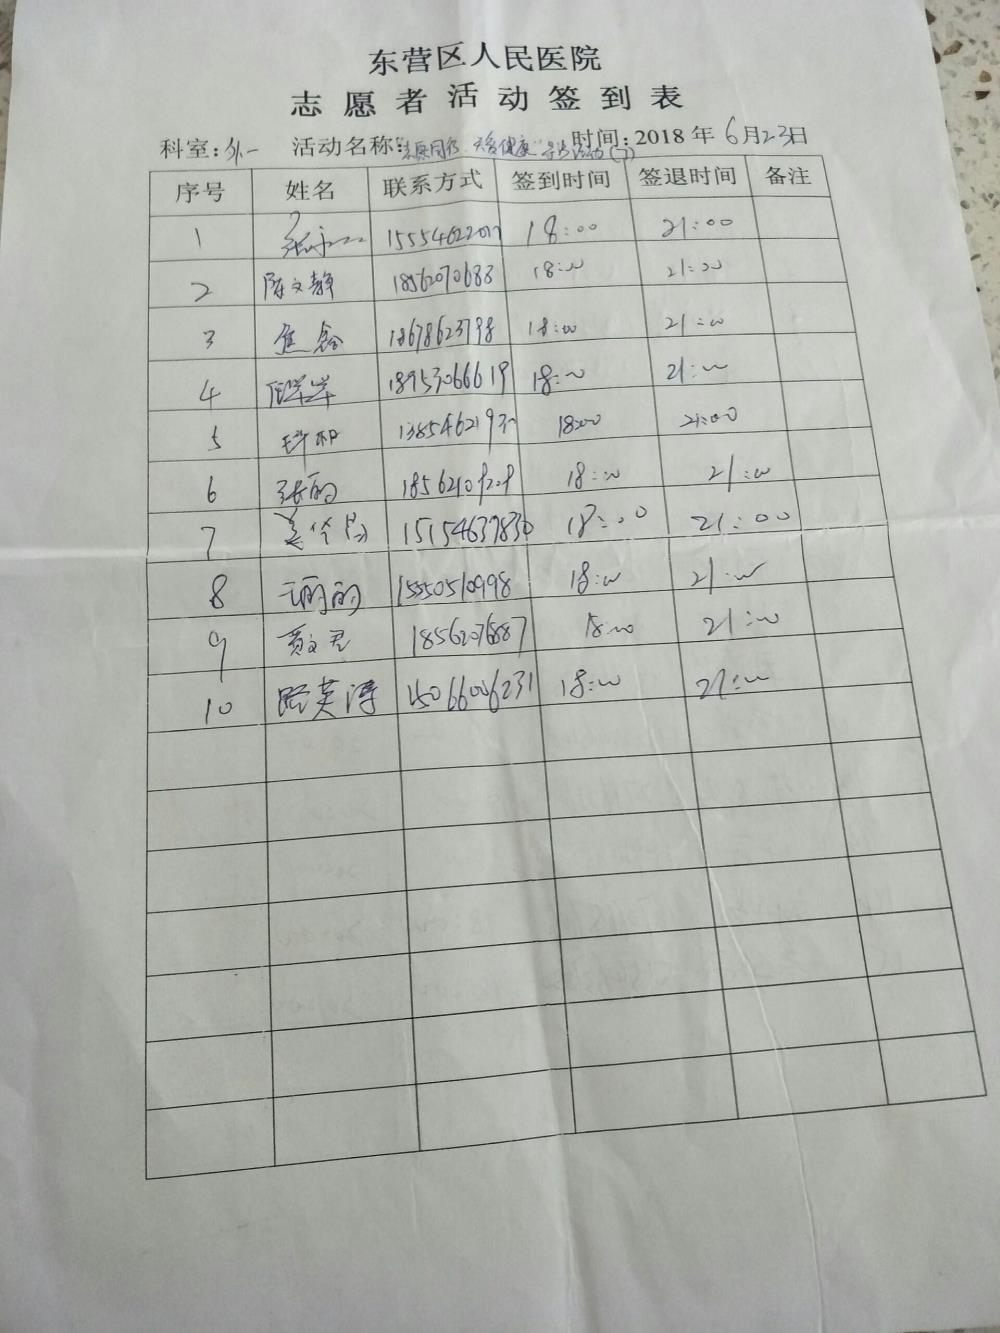 东营区人民医院
志愿者活动签到表
科室:外一 活动名称: 时间:2018年6月23日
序号 姓名 联系方式 签到时间 签退时间 备注
1 18:00 21:00
2 陈文静 18562070688 18:00 21:00
3 焦鑫 18678623798 18:00 21:00
4 18953066619 18:00 21:00
5 18:00 21:00
6 张丽 18:00 21:00
7 15154637830 18:00 21:00
8 15550510998 18:00 21:00
9 贾文君 18562076887 18:00 21:00
10 15066006231 18:00 21:00